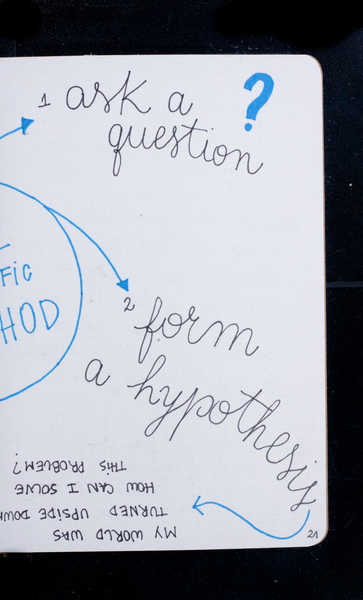 1 ask a
question
?
FiC
HOD
2 form
a hypothesis
MY WORLD WAS
TURNED UPSIDE DOWN
HOW CAN I SOLVE
THIS PROBLEM?
21